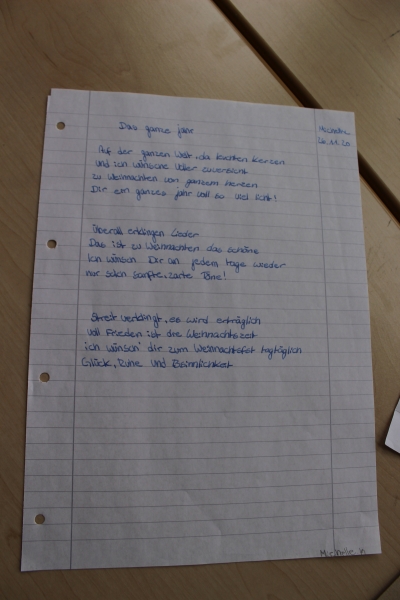 Das ganze Jahr
Auf der ganzen Welt, da leuchten Kerzen
und ich wünsche voller zuversicht
zu Weihnachten von ganzem Herzen
Dir ein ganzes Jahr voll so viel Licht!
Überall erklingen Lieder
Das ist zu Weihnachten das schöne
Ich wünsch Dir an jedem tage wieder
nur solch sanfte, zarte Töne!
Streit verklingt, es wird erträglich
voll Frieden ist die Weihnachtszeit
ich wünsch' dir zum Weihnachtsfest tagtäglich
Glück, Ruhe und Besinnlichkeit